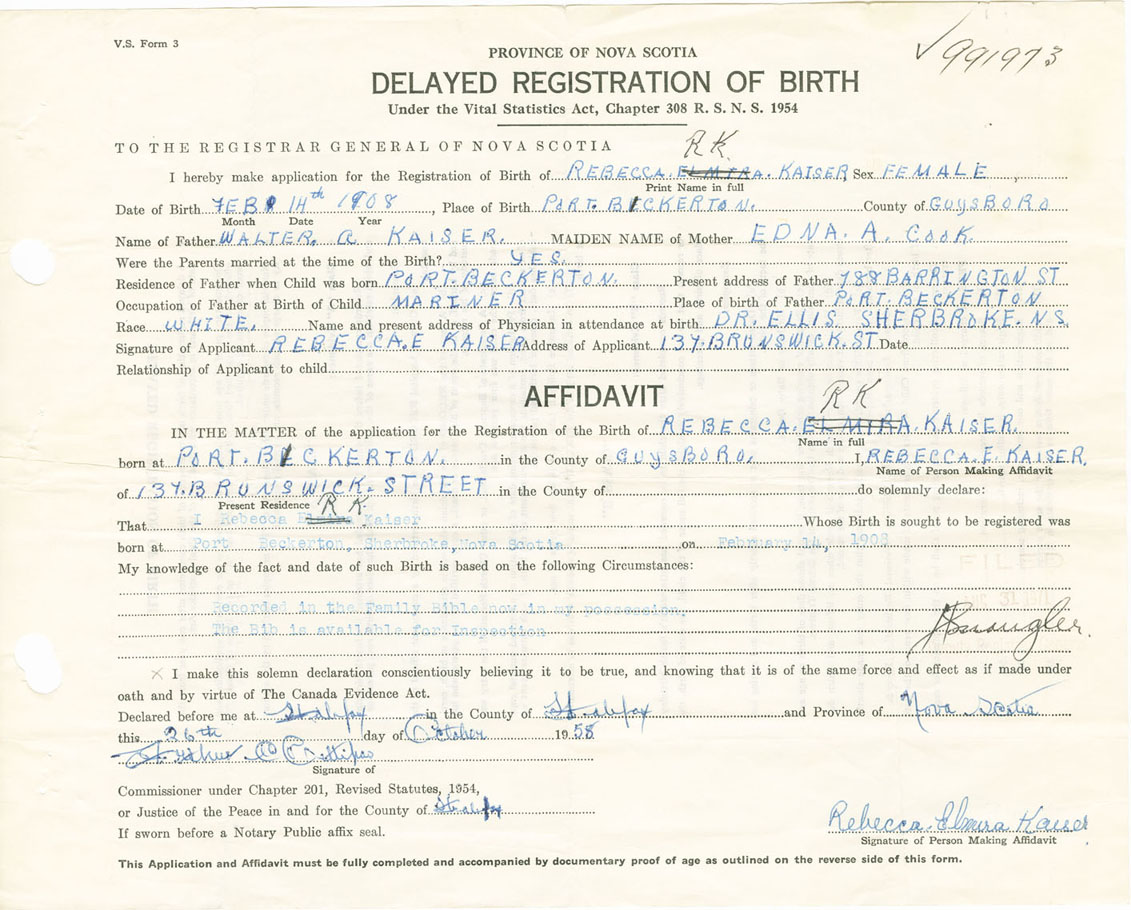 V.S. Form 3
991973
PROVINCE OF NOVA SCOTIA
DELAYED REGISTRATION OF BIRTH
Under the Vital Statistics Act, Chapter 308 R. S. N. S. 1954
TO THE REGISTRAR GENERAL OF NOVA SCOTIA
RK
I hereby make application for the Registration of Birth of REBECCA. ELMIRA. KAISER, Sex FEMALE
Print Name in full
Date of Birth FEB 14th 1908, Place of Birth PORT. BICKERTON. County of GUYSBORO
Month Date Year
Name of Father WALTER. A KAISER. MAIDEN NAME of Mother EDNA. A. COOK.
Were the Parents married at the time of the Birth? YES.
Residence of Father when Child was born PORT. BECKERTON. Present address of Father 788 BARRINGTON ST
Occupation of Father at Birth of Child MARINER Place of birth of Father PORT. BECKERTON
Race WHITE. Name and present address of Physician in attendance at birth DR. ELLIS SHERBROKE. N.S.
Signature of Applicant REBECCA. E KAISER Address of Applicant 137. BRUNSWICK. ST Date
Relationship of Applicant to child
AFFIDAVIT
RK
IN THE MATTER of the application for the Registration of the Birth of REBECCA. ELMIRA. KAISER.
Name in full
born at PORT. BICKERTON. in the County of GUYSBORO. I, REBECCA. E. KAISER.
Name of Person Making Affidavit
of 137. BRUNSWICK. STREET in the County of do solemnly declare:
Present Residence RK.
That I Rebecca Elmira Kaiser Whose Birth is sought to be registered was
born at Port Beckerton, Sherbroke, Nova Scotia on February 14, 1908
My knowledge of the fact and date of such Birth is based on the following Circumstances:
FILED
Recorded in the Family Bible now in my possession,
The Bib is available for Inspection
X I make this solemn declaration conscientiously believing it to be true, and knowing that it is of the same force and effect as if made under
oath and by virtue of The Canada Evidence Act.
Declared before me at Halifax in the County of Halifax and Province of Nova Scotia
this 26th day of October 1958
Signature of
Commissioner under Chapter 201, Revised Statutes, 1954,
or Justice of the Peace in and for the County of Halifax
If sworn before a Notary Public affix seal.
Rebecca Elmira Kaiser
Signature of Person Making Affidavit
This Application and Affidavit must be fully completed and accompanied by documentary proof of age as outlined on the reverse side of this form.